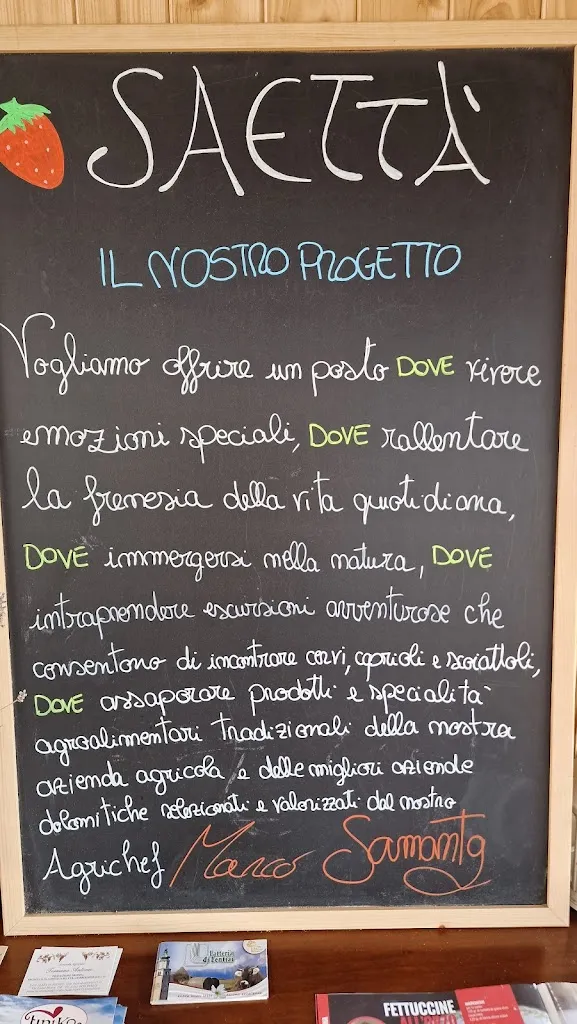 SAETTÀ
IL NOSTRO PROGETTO
Vogliamo offrire un posto DOVE vivere
emozioni speciali, DOVE rallentare
la frenesia della vita quotidiana,
DOVE immergersi nella natura, DOVE
intraprendere escursioni avventurose che
consentono di incontrare cervi, caprioli e scoiattoli,
DOVE assaporare prodotti e specialità
agroalimentari tradizionali della nostra
azienda agricola e delle migliori aziende
dolomitiche selezionati e valorizzati dal nostro
Agrichef Marco
Fattoria
FETTUCCINE